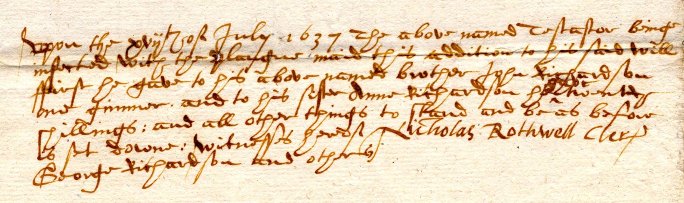 Upon the xvijth of July 1637 The above named Testator beinge
infected with the Plaugue maid this addition to his said will
ffirst he gave to his above named brother John Richardson
one gimmer, and to his sister Anne Richardson twentey
shillings; and all other things to stand and be as before
is set downe; witnesses hereof Nicholas Rothwell Cler
George Richardson and others